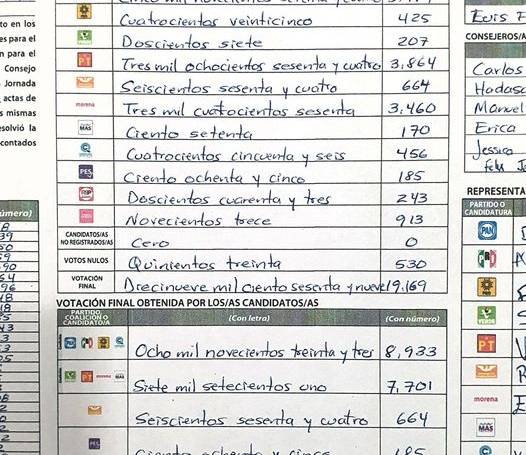 Cuatrocientos veinticinco 425
VERDE Doscientos siete 207
PT Tres mil ochocientos sesenta y cuatro 3,864
Seiscientos sesenta y cuatro 664
morena Tres mil cuatrocientos sesenta 3,460
MAS Ciento setenta 170
Cuatrocientos cincuenta y seis 456
PES Ciento ochenta y cinco 185
RSP Doscientos cuarenta y tres 243
Novecientos trece 913
CANDIDATOS/AS NO REGISTRADOS/AS Cero 0
VOTOS NULOS Quinientos treinta 530
VOTACIÓN FINAL Diecinueve mil ciento sesenta y nueve 19,169
VOTACIÓN FINAL OBTENIDA POR LOS/AS CANDIDATOS/AS
PARTIDO, COALICIÓN O CANDIDATO/A (Con letra) (Con número)
Ocho mil novecientos treinta y tres 8,933
Siete mil setecientos uno 7,701
Seiscientos sesenta y cuatro 664
PES Ciento ochenta y cinco 185
to en los
es para el
n para el
Consejo
Jornada
actas de
s mismas
esolvió la
contados
úmero)
CONSEJEROS/A
Carlos
Hadasa
Manuel
Erica
Jessica
REPRESENTA
PARTIDO O CANDIDATURA
PAN
PRI
VERDE
PT
morena
MAS